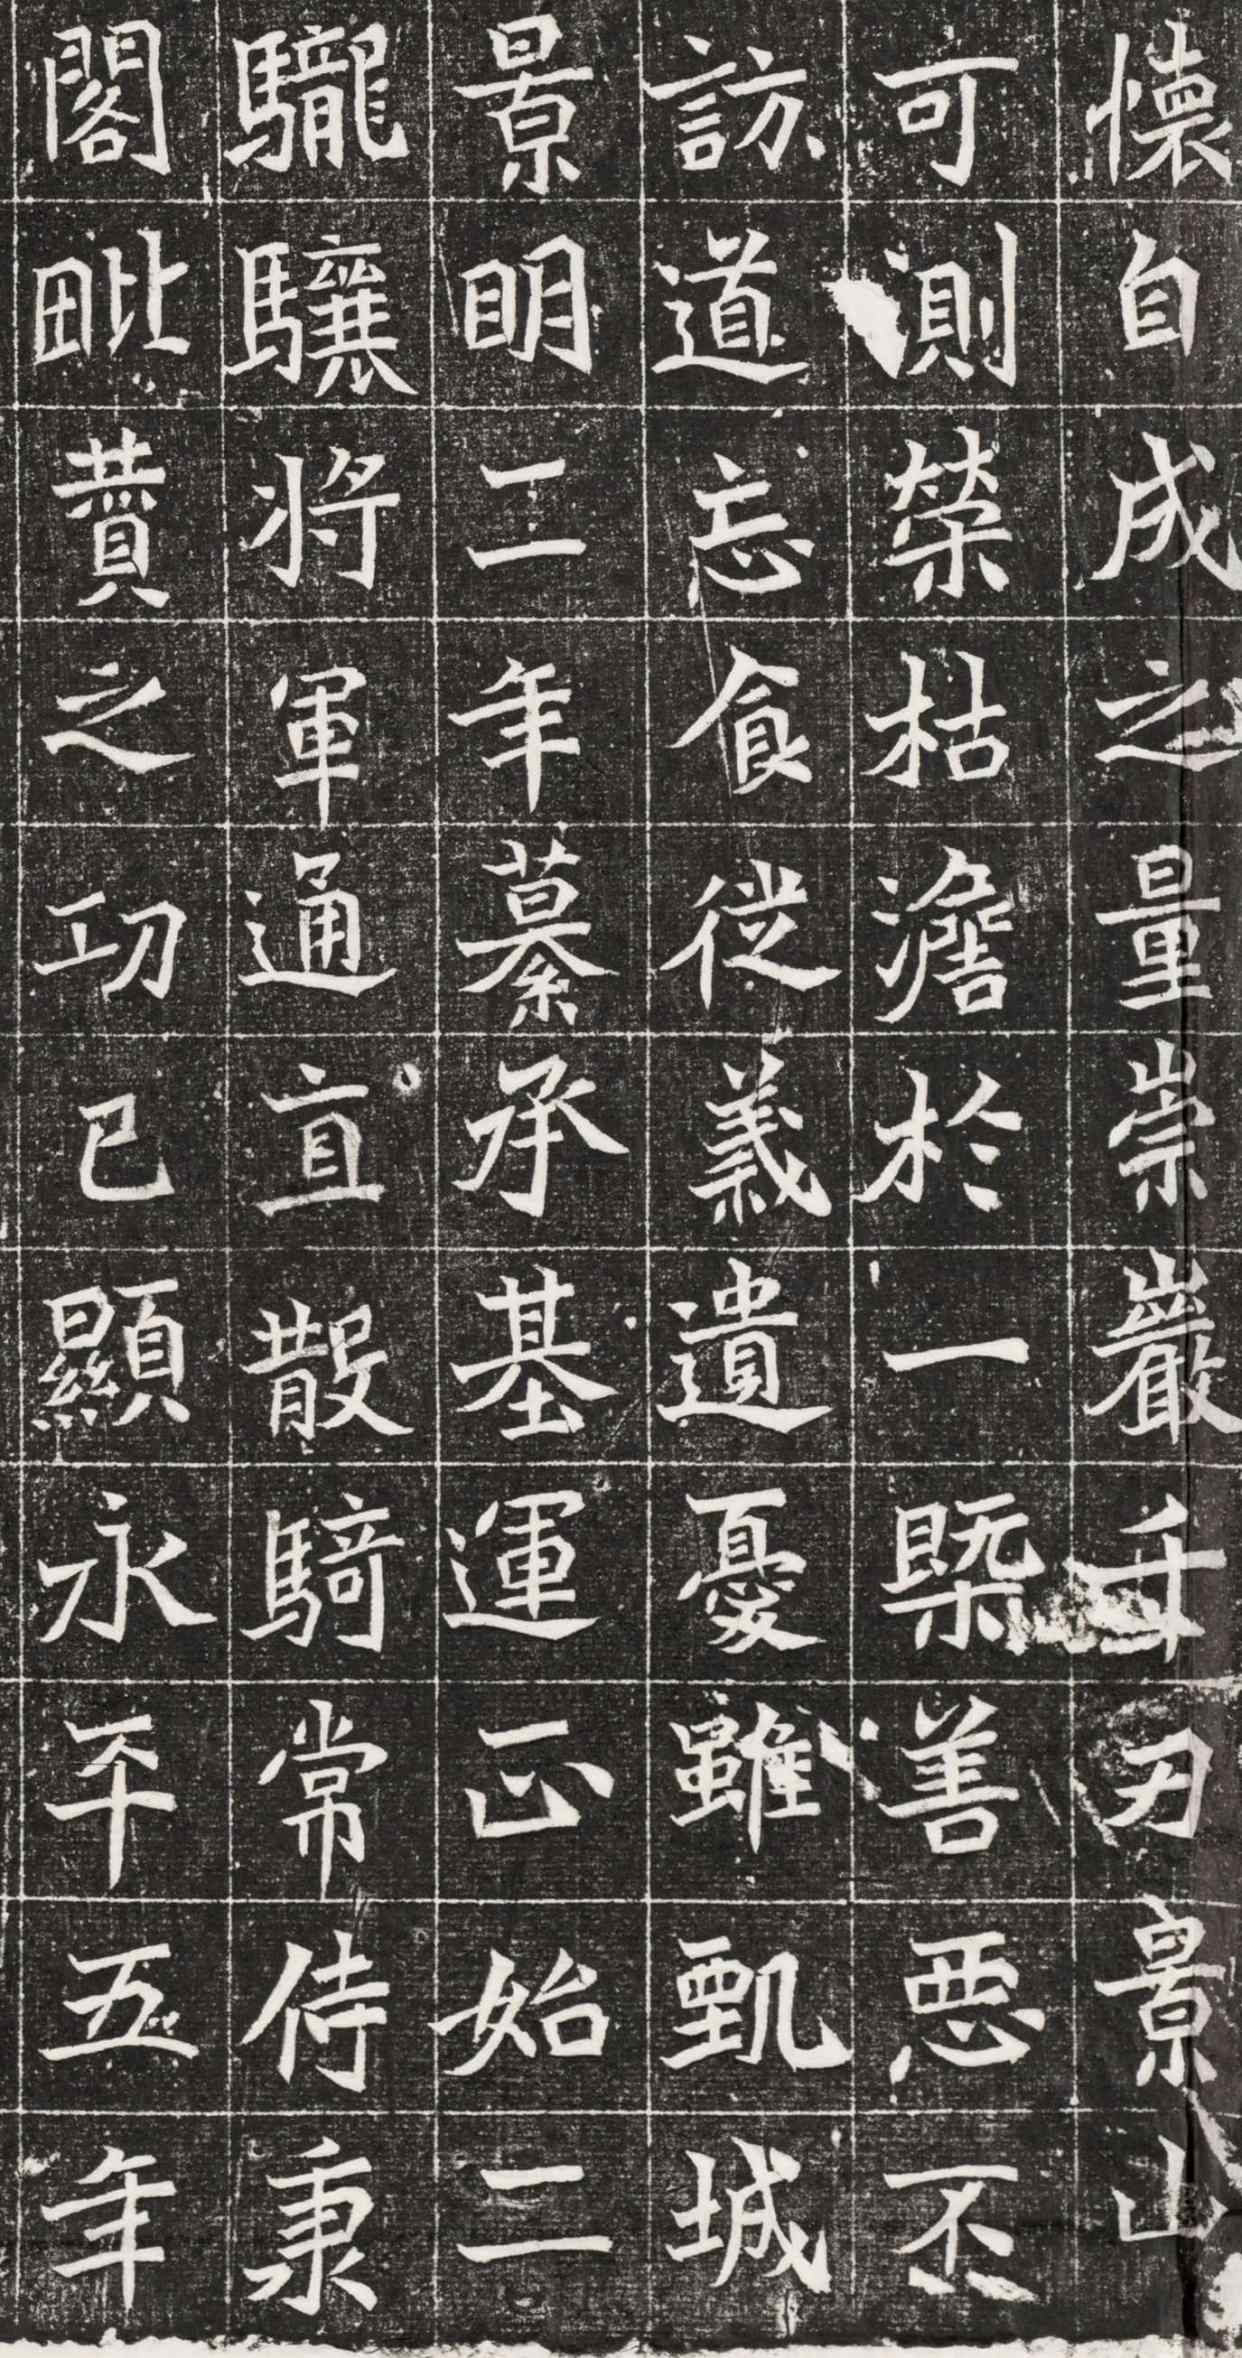 懷自成之量崇巖千刃景山
可測榮枯澹於一槩善惡不
訪道忘食徙義遺憂雖甄城
景明二年纂承基運正始二
驪驤將軍通直散騎常侍秉
閣毗贊之功已顯永平五年